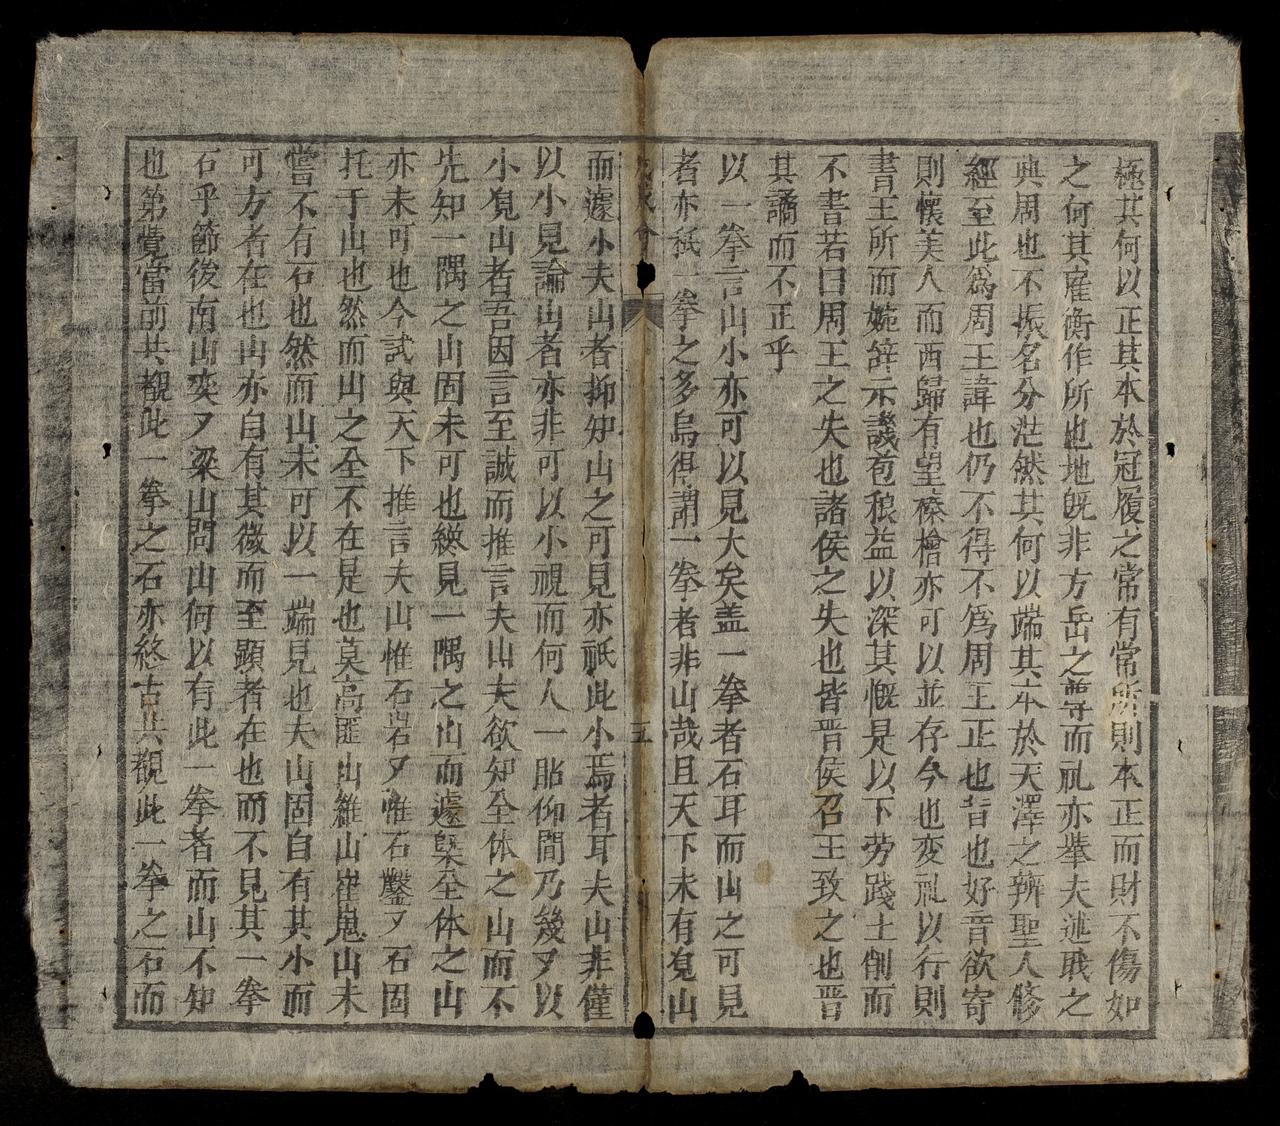 極其何以正其本於冠履之常有常所則本正而財不傷如
之何其雇衡作所也地旣非方岳之尊而礼亦搴夫述聀之
典周也不振名分茫然其何以端其本於天澤之辨聖人修
經至此為周王諱也仍不得不為周王正也昔也好音欲寄
則懷美人而西歸有望榛檜亦可以並存今也変礼以行則
書王所而婉辞示譏苞稂益以深其慨是以下劳踐土削而
不書若曰周王之失也諸侯之失也皆晋侯召王致之也晋
其譎而不正乎
以一拳言山小亦可以見大矣盖一拳者石耳而山之可見
者亦秖一拳之多烏得謂一拳者非山哉且天下未有覓山
五
而遽小夫山者抑知山之可見亦祇此小焉者耳夫山非僅
以小見論山者亦非可以小視而何人一眙仰間乃幾又以
小覓山者吾因言至誠而推言夫山夫欲知全体之山而不
先知一隅之山固未可也総見一隅之山而遽槩全体之山
亦未可也今試與天下推言夫山惟石岩又惟石鑿又石固
托于山也然而山之至不在是也莫高匪山維山崔嵬山未
嘗不有石也然而山未可以一端見也夫山固自有其小而
可方者在也山亦自有其微而至顕者在也而不見其一拳
石乎節彼南山奕又梁山問山何以有此一拳者而山不知
也第覺當前共覩此一拳之石亦終古共觀此一拳之石而